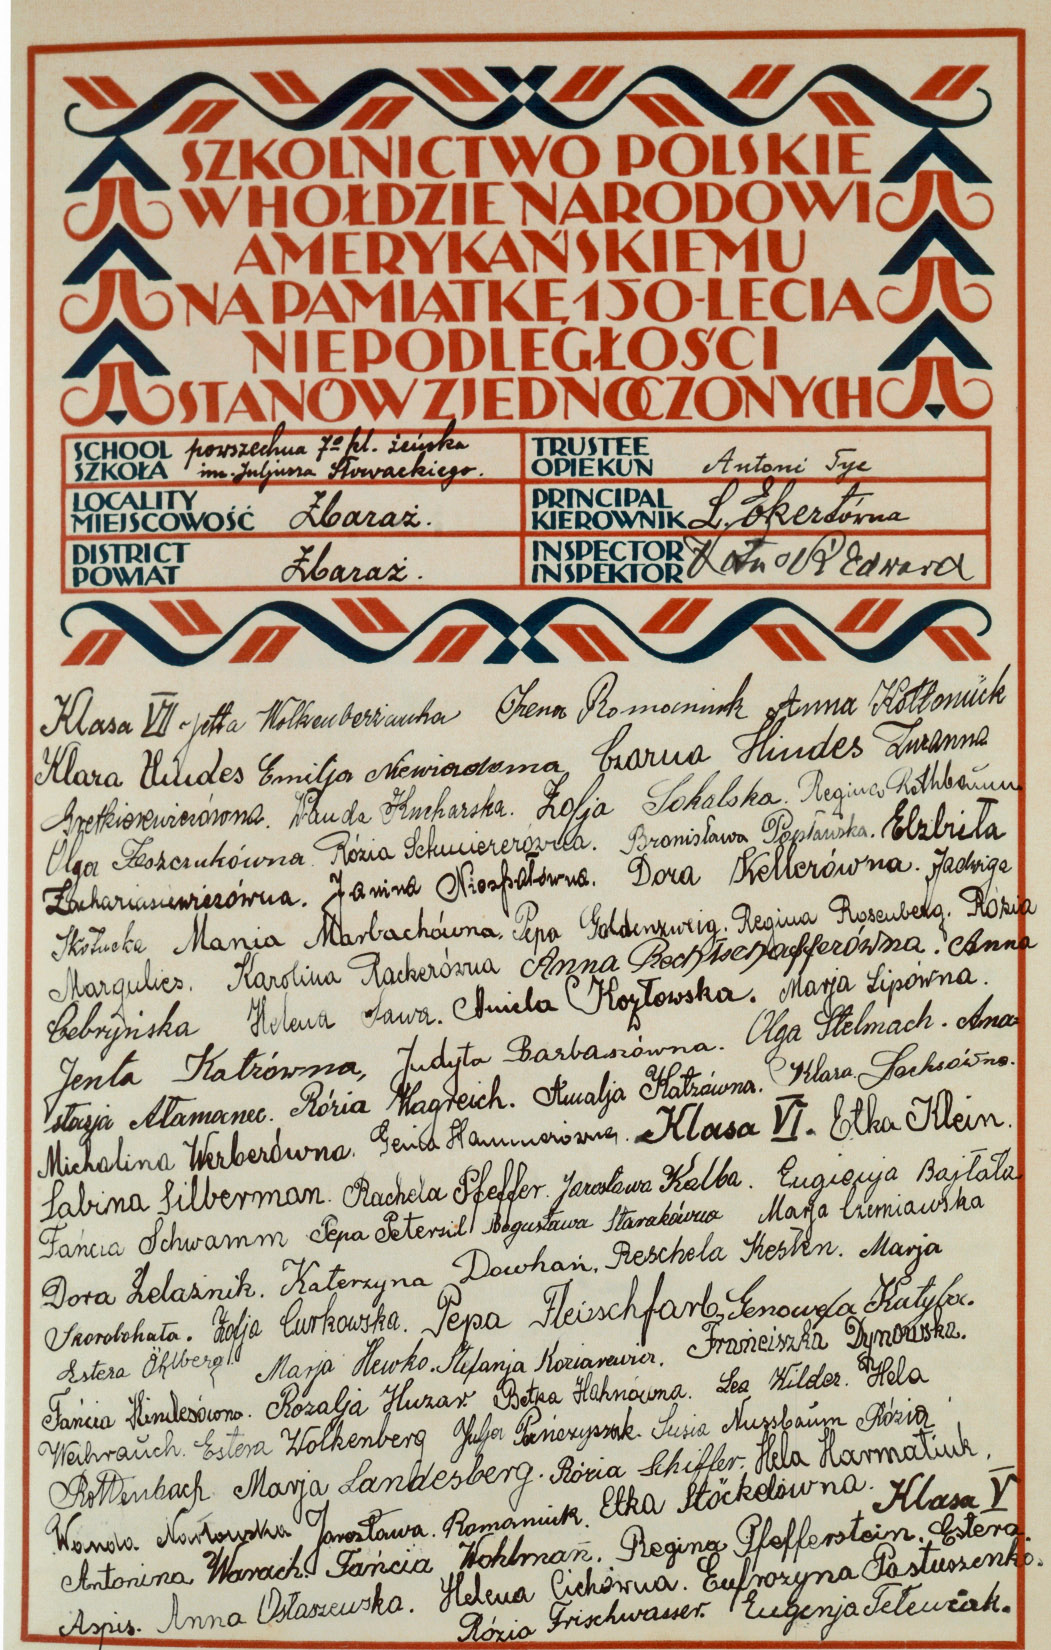 SZKOLNICTWO POLSKIE
W HOŁDZIE NARODOWI
AMERYKAŃSKIEMU
NA PAMIĄTKĘ 150-LECIA
NIEPODLEGŁOŚCI
STANÓW ZJEDNOCZONYCH
SCHOOL SZKOŁA powszechna 7o kl. żeńska
im. Juljusza Słowackiego.
TRUSTEE OPIEKUN Antoni Tyc
LOCALITY MIEJSCOWOŚĆ Zbaraż.
PRINCIPAL KIEROWNIK L. Ekertówna
DISTRICT POWIAT Zbaraż.
INSPECTOR INSPEKTOR Edward
Klasa VII Jetta Wolkenberżanka Irena Romaniuk Anna Kotłoniuk
Klara Hindes Emilja Niewiadoma Czarna Hindes Zuzanna
Wanda Kucharska. Zofja Sokalska. Regina Rothbaum
Olga Rózia Schmiererówna. Bronisława Popławska. Elżbieta
Zachariasiewiczówna. Janina Dora Kellerówna. Jadwiga
Mania Marbachówna. Pepa Goldenzweig. Regina Rosenberg. Rózia
Margulies. Karolina Rackerówna Anna Rechtschafferówna. Anna
Cebryńska Helena Sawa. Aniela Kozłowska. Marja Lipówna.
Jenta Katzówna, Judyta Barbaszówna. Olga Stelmach. Ana-
stazja Atamanec. Rózia Hagreich. Amalja Katzówna. Klara Sachsówna.
Michalina Werberówna. Genia Hammerówna. Klasa VI. Etka Klein.
Sabina Silberman. Rachela Pfeffer. Jarosława Kalba. Eugienja Bajtała
Fańcia Schwamm Pepa Petersil Bogusława Starakówna Marja Czerniawska
Dora Żelaźnik. Katerzyna Dowhań. Reschela Kesten. Marja
Skorobohata. Zofja Curkowska. Pepa Fleischfarb. Genowefa Kutyba.
Estera Öhlberg. Marja Hewko. Stefanja Koziarewicz. Franciszka Dynowska.
Fańcia Hindesówna. Rozalja Huzar. Betka Hahnówna. Lea Wilder. Hela
Weihrauch. Estera Wolkenberg Julja Susia Nussbaum Rózia
Rottenbach Marja Landesberg. Rózia Schiffer. Hela Harmatiuk.
Wanda Nawłowska Jarosława Romaniuk. Etka Stöckelówna. Klasa V
Antonina Warach. Fańcia Wohlman. Regina Pfefferstein. Estera
Aspis. Anna Ostaszewska. Helena Cichówna. Eufrozyna Pastuszenko.
Rózia Frischwasser. Eugenja Teleużak.